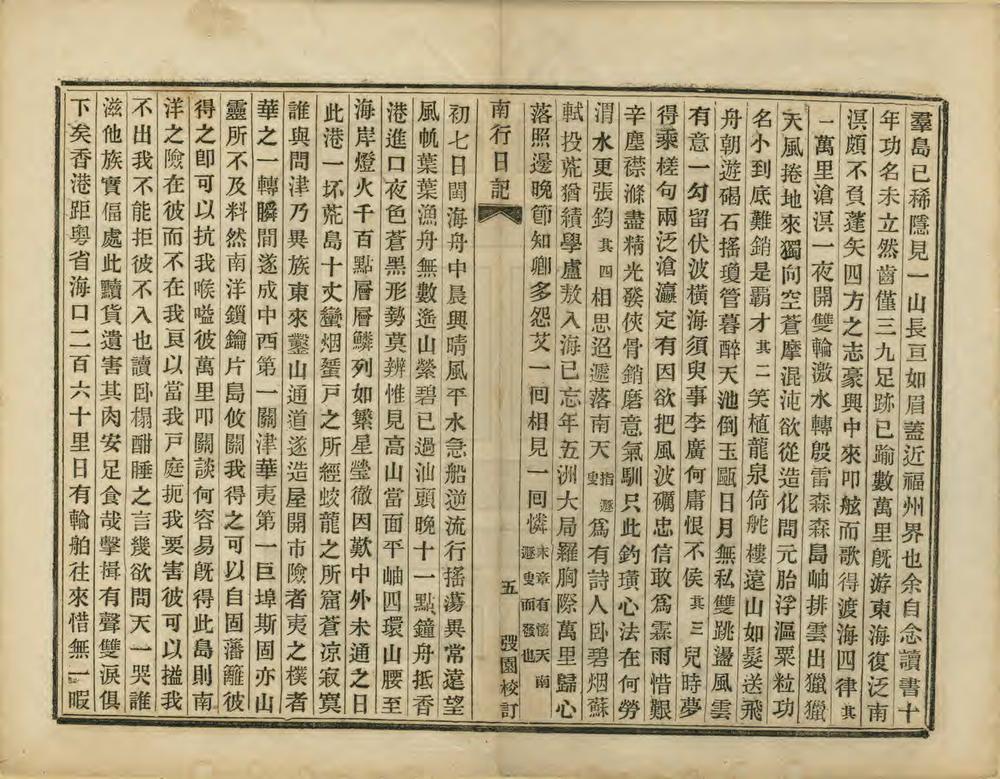 羣島已稀隱見一山長亘如眉蓋近福州界也余自念讀書十
年功名未立然齒僅三九足跡已踰數萬里旣游東海復泛南
溟頗不負蓬矢四方之志豪興中來叩舷而歌得渡海四律其
一萬里滄溟一夜開雙輪激水轉殷雷森森島岫排雲出獵獵
天風捲地來獨向空蒼摩混沌欲從造化問元胎浮漚粟粒功
名小到底難銷是覇才其二笑植龍泉倚舵樓遠山如髮送飛
舟朝遊碣石搖瓊管暮醉天池倒玉甌日月無私雙跳盪風雲
有意一勾留伏波橫海須臾事李廣何庸恨不侯其三兒時夢
得乘槎句兩泛滄瀛定有因欲把風波礪忠信敢爲霖雨惜艱
辛塵襟滌盡精光發俠骨銷磨意氣馴只此釣璜心法在何勞
渭水更張鈞其四相思迢遞落南天指遯叟爲有詩人卧碧烟蘇
軾投荒猶績學盧敖入海已忘年五洲大局羅胸際萬里歸心
落照邊晚節知卿多怨艾一回相見一回憐末章有懷天南遯叟而發也
南行日記 五 弢園校訂
初七日閩海舟中晨興晴風平水急船逆流行搖蕩異常遠望
風帆葉葉漁舟無數遙山縈碧已過汕頭晚十一點鐘舟抵香
港進口夜色蒼黑形勢莫辨惟見高山當面平岫四環山腰至
海岸燈火千百點層層鱗列如繁星瑩徹因歎中外未通之日
此港一坏荒島十丈蠻烟蜑戸之所經蛟龍之所窟蒼凉寂寞
誰與問津乃異族東來鑿山通道遂造屋開市險者夷之樸者
華之一轉瞬間遂成中西第一關津華夷第一巨埠斯固亦山
靈所不及料然南洋鎖鑰片島攸關我得之可以自固藩籬彼
得之卽可以抗我喉嗌彼萬里叩關談何容易旣得此島則南
洋之險在彼而不在我㠯以當我戸庭扼我要害彼可以搤我
不出我不能拒彼不入也讀卧榻酣睡之言幾欲問天一哭誰
滋他族實偪處此黷貨遺害其肉安足食哉擊揖有聲雙淚俱
下矣香港距粤省海口二百六十里日有輪舶往來惜無一暇